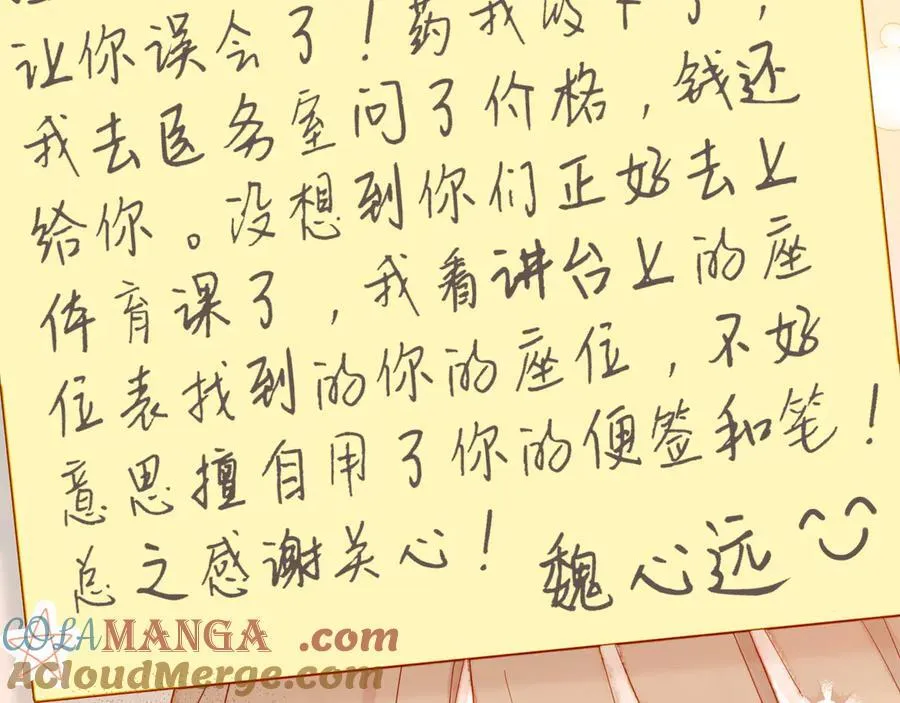 让你误会了！药我收下了，
我去医务室问了价格，钱还
给你。没想到你们正好去上
体育课了，我看讲台上的座
位表找到的你的座位，不好
意思擅自用了你的便签和笔！
总之感谢关心！
魏心远
COLAMANGA.com
AcloudMerge.com